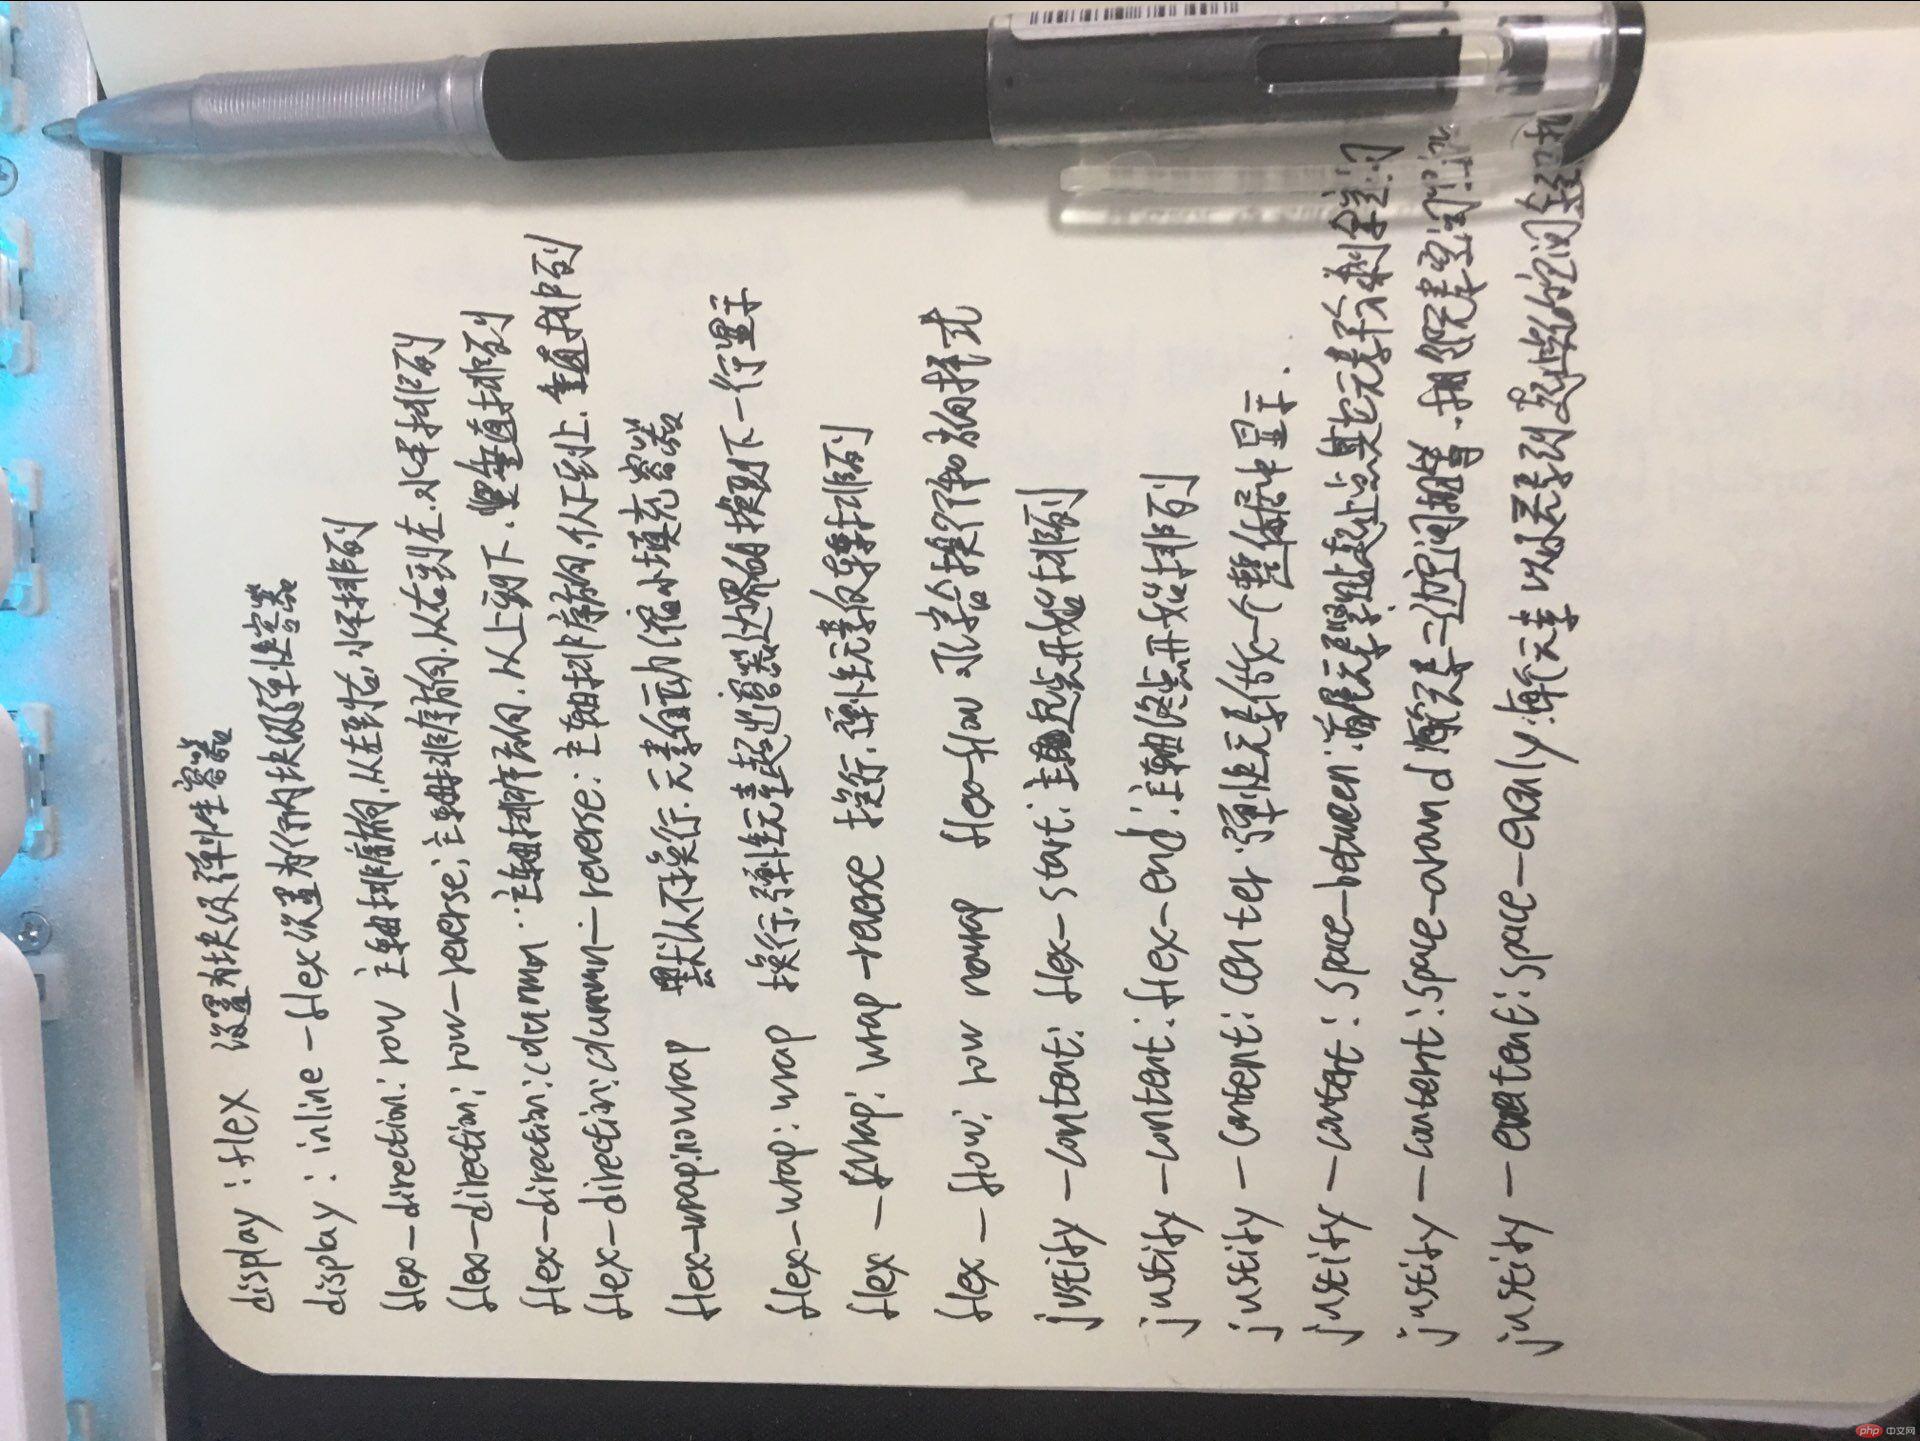 display : flex 设置为块级弹性容器
display : inline-flex 设置为行内块级弹性容器
flex-direction: row 主轴排序方向,从左到右,水平排列
flex-direction: row-reverse; 主轴排序方向,从右到左,水平排列
flex-direction: column : 主轴排序方向,从上到下,垂直排列
flex-direction: column-reverse: 主轴排序方向,从下到上,垂直排列
flex-wrap: nowrap 默认不换行,元素自动缩小填充容器
flex-wrap: wrap 换行,弹性元素超出容器边界的换到下一行显示
flex-wrap: wrap-reverse 换行,弹性元素反转排列
flex-flow: row nowrap flex-flow 换行和方向样式
justify-content: flex-start: 主轴起点开始排列
justify-content: flex-end: 主轴终点开始排列
justify-content: center: 弹性元素作为一个整体居中显示.
justify-content: space-between: 首尾元素起止点其它元素平分剩余空间
justify-content: space-around 每个元素二边空间相等,相邻元素空间
justify-content: space-evenly: 每个元素以及元素到起止点的空间全部
php 中文网